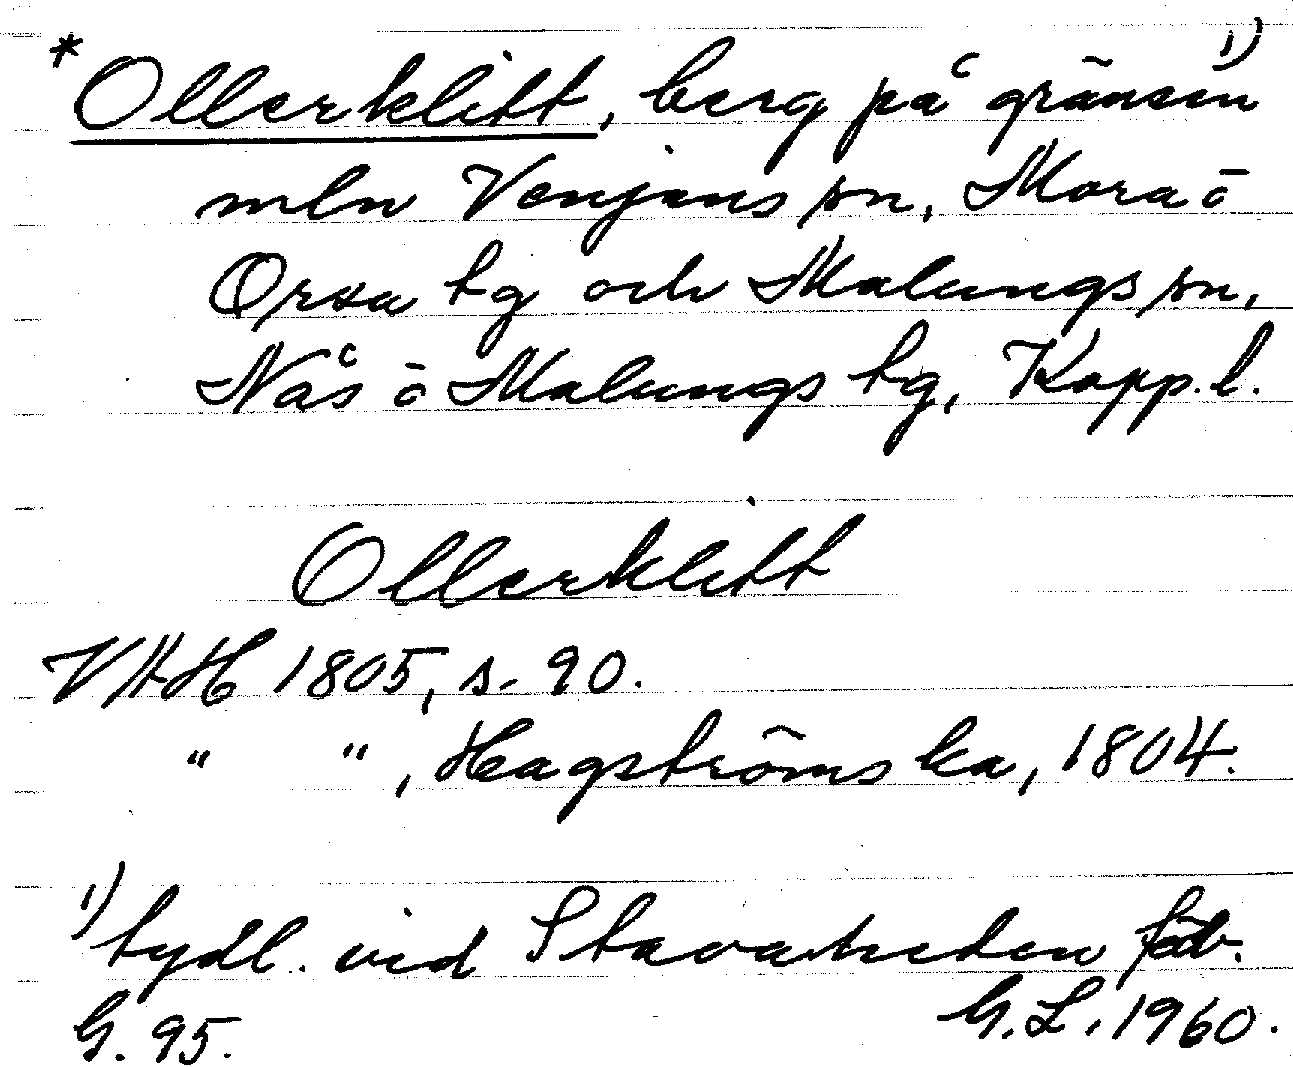 *Ollerklitt, berg på gränsen 1)
mln Venjans sn, Mora o
Orsa tg och Malungs sn,
Nås o Malungs tg, Kopp. l.
Ollerklitt
VAH 1805, s. 90.
" ", Hagströms ka, 1804.
1) tydl. vid Stavaheden fäb.
G. 95. G. L. 1960.